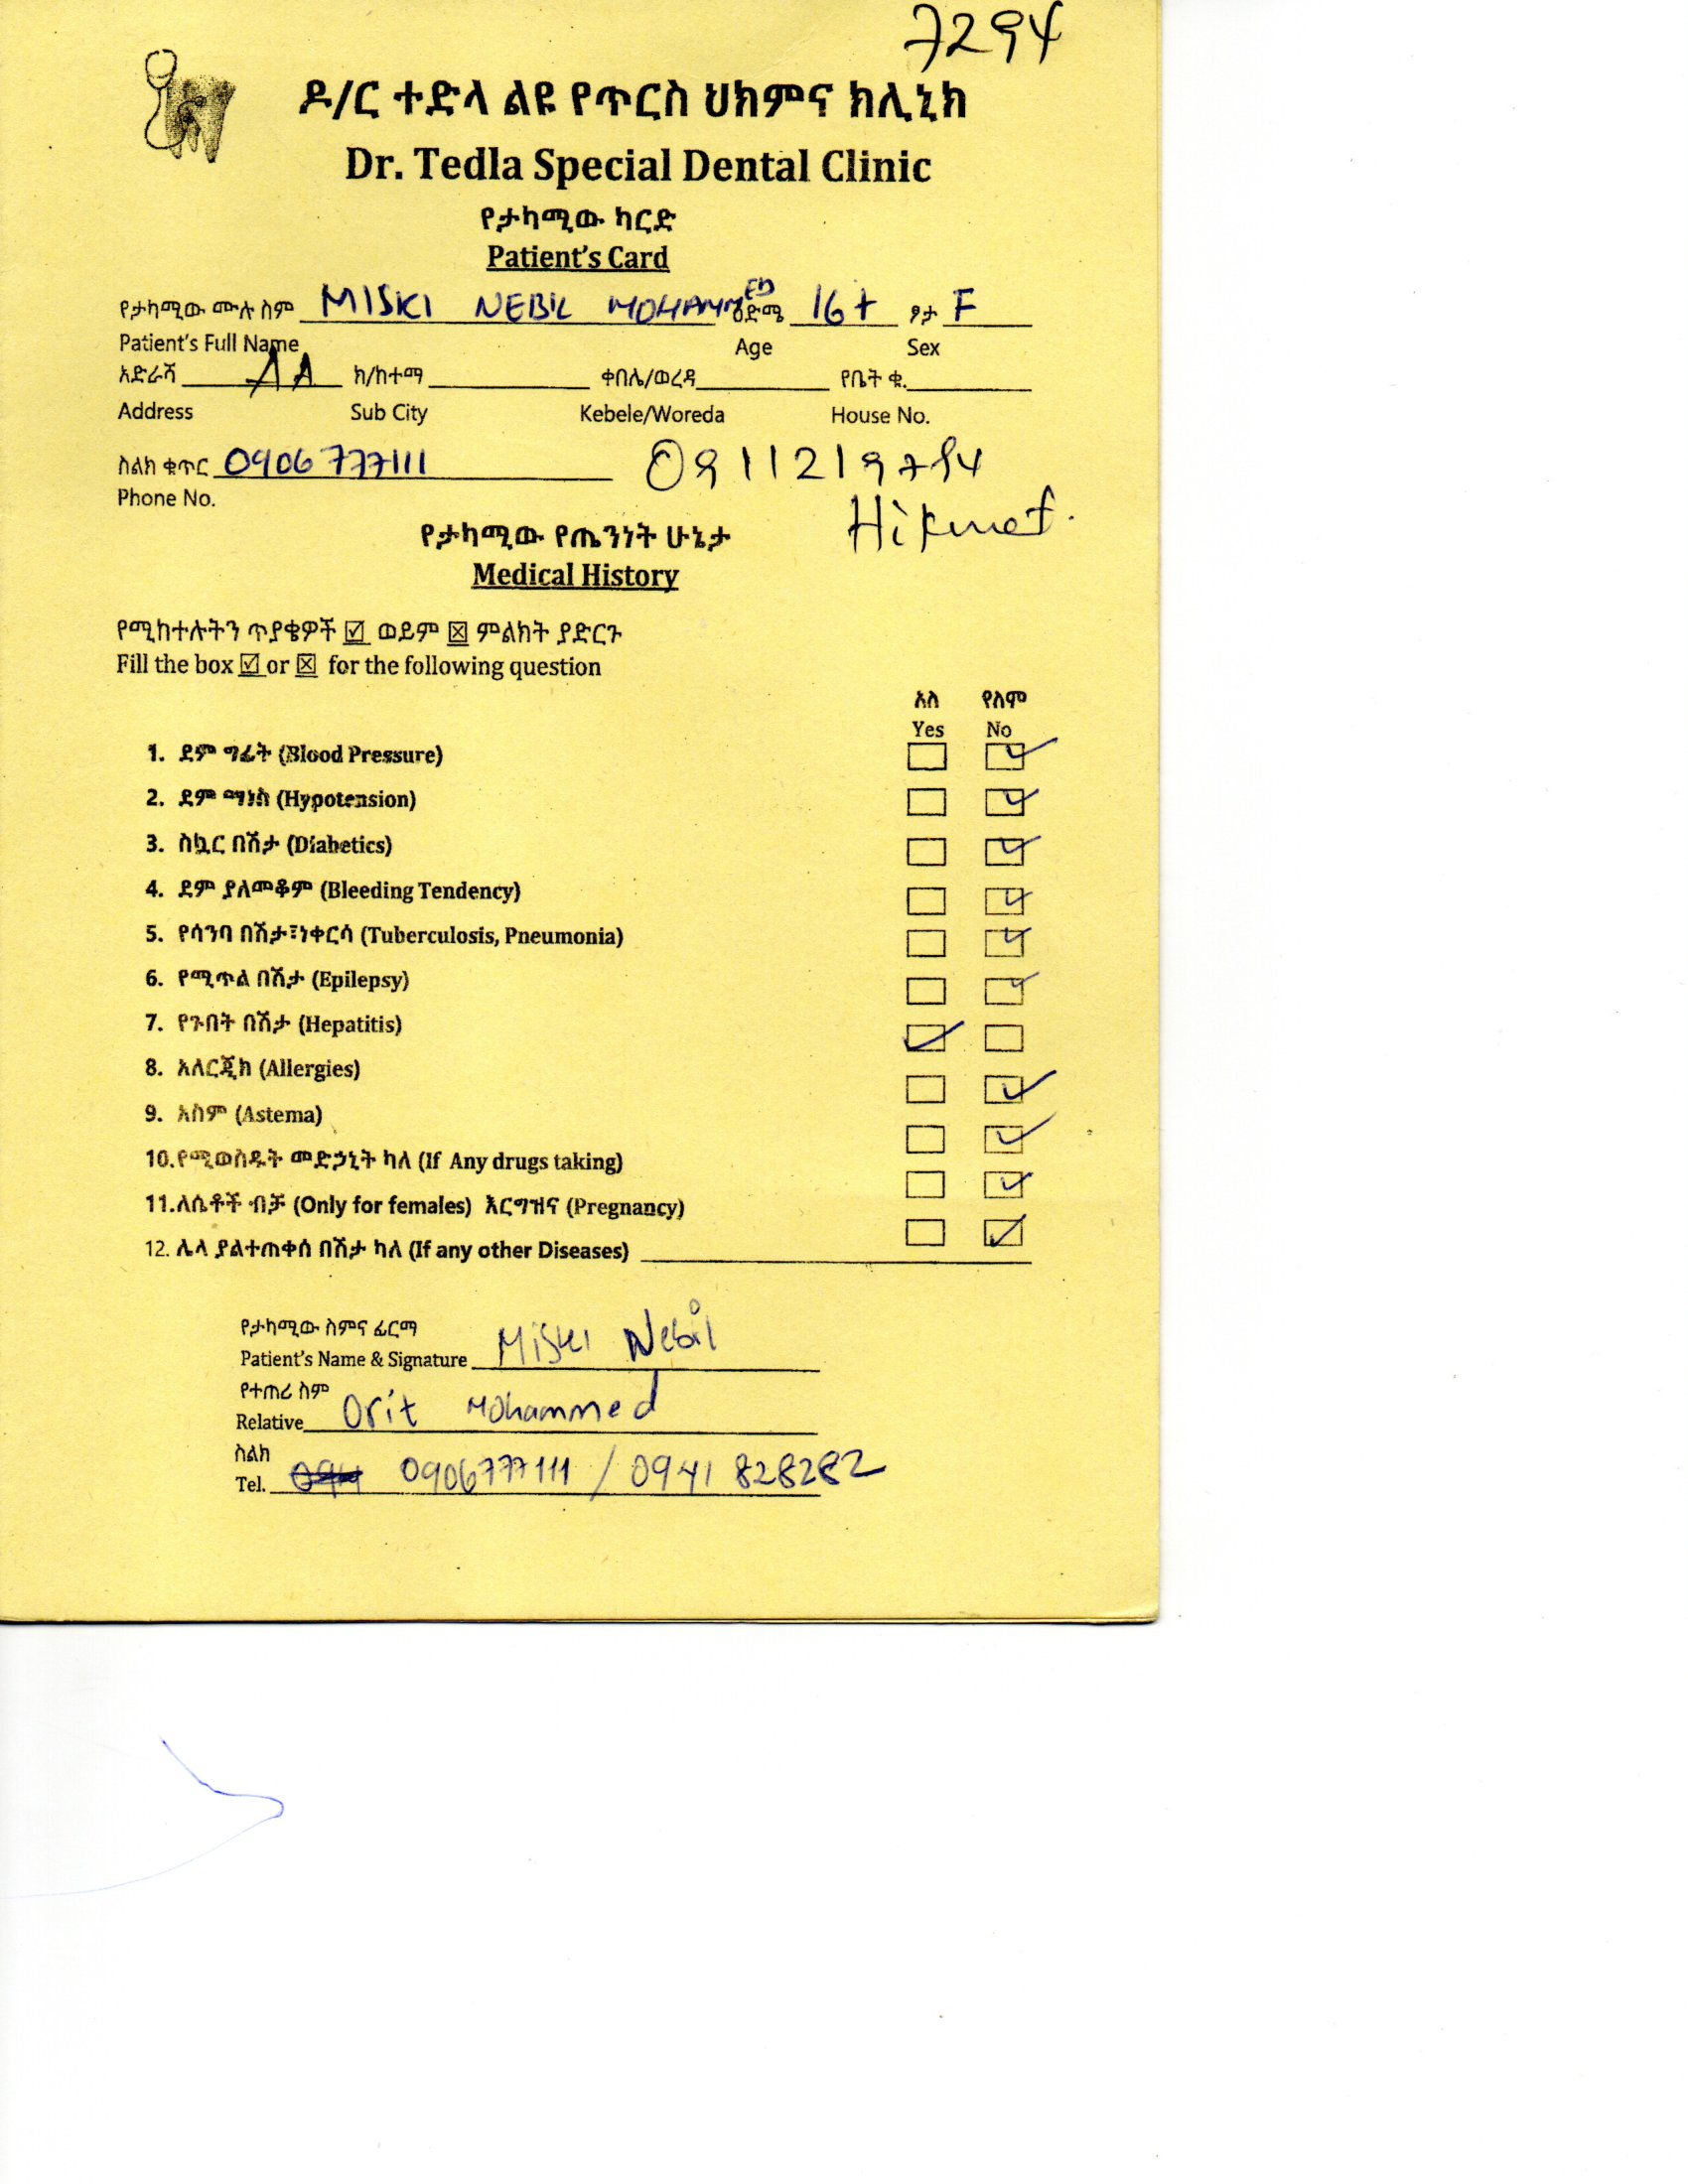 7294
ዶ/ር ተድላ ልዩ የጥርስ ህክምና ክሊኒክ
Dr. Tedla Special Dental Clinic
የታካሚው ካርድ
Patient's Card
የታካሚው ሙሉ ስም MISKI NEBIL MOHAMMED ዕድሜ 16+ ፆታ F
Patient's Full Name Age Sex
አድራሻ AA ክ/ከተማ ቀበሌ/ወረዳ የቤት ቁ.
Address Sub City Kebele/Woreda House No.
ስልክ ቁጥር 0906777111
Phone No.
Hikmet.
የታካሚው የጤንነት ሁኔታ
Medical History
የሚከተሉትን ጥያቄዎች ☑ ወይም ☒ ምልክት ያድርጉ
Fill the box ☑ or ☒ for the following question
አለ የለም
Yes No
1. ደም ግፊት (Blood Pressure)
2. ደም ማነስ (Hypotension)
3. ስኳር በሽታ (Diabetics)
4. ደም ያለመቆም (Bleeding Tendency)
5. የሳንባ በሽታ፣ነቀርሳ (Tuberculosis, Pneumonia)
6. የሚጥል በሽታ (Epilepsy)
7. የጉበት በሽታ (Hepatitis)
8. አለርጂክ (Allergies)
9. አስም (Astema)
10.የሚወስዱት መድኃኒት ካለ (If Any drugs taking)
11.ለሴቶች ብቻ (Only for females) እርግዝና (Pregnancy)
12. ሌላ ያልተጠቀሰ በሽታ ካለ (If any other Diseases)
የታካሚው ስምና ፊርማ
Patient's Name & Signature Miski Nebil
የተጠሪ ስም
Relative Orit Mohammed
ስልክ
Tel. 0906777111 / 0941 828282